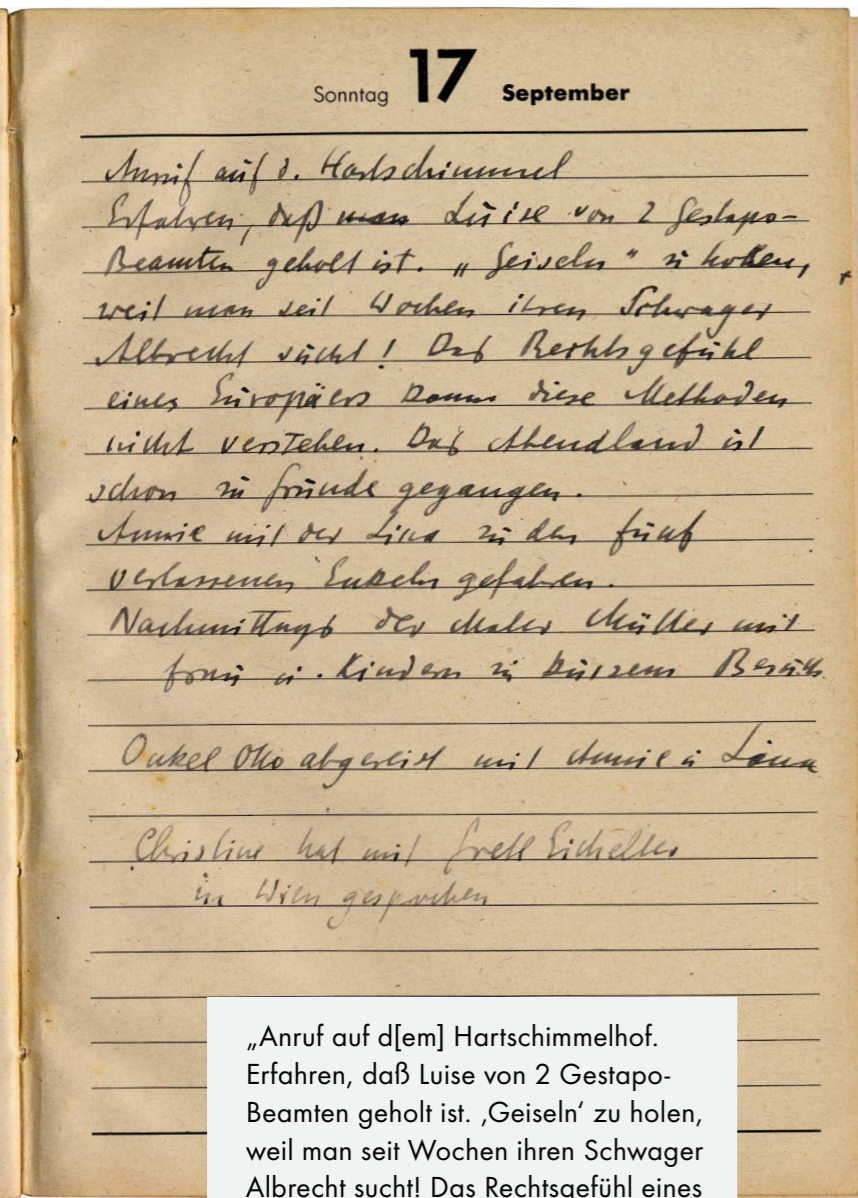 Sonntag 17 September
Anruf auf d. Hartschimmel
Erfahren, daß man Luise von 2 Gestapo-
Beamten geholt ist. „Geiseln" zu holen,
weil man seit Wochen ihren Schwager
Albrecht sucht! Das Rechtsgefühl
eines Europäers kann diese Methoden
nicht verstehen. Das Abendland ist
schon zu Grunde gegangen.
Annie mit der Lina zu den fünf
verlassenen Enkeln gefahren.
Nachmittags der Maler Müller mit
Frau u. Kindern zu kurzem Besuch.
Onkel Otto abgereist mit Annie u Lina
Christine hat mit Gretl
in Wien gesprochen
„Anruf auf d[em] Hartschimmelhof.
Erfahren, daß Luise von 2 Gestapo-
Beamten geholt ist. ‚Geiseln‘ zu holen,
weil man seit Wochen ihren Schwager
Albrecht sucht! Das Rechtsgefühl eines